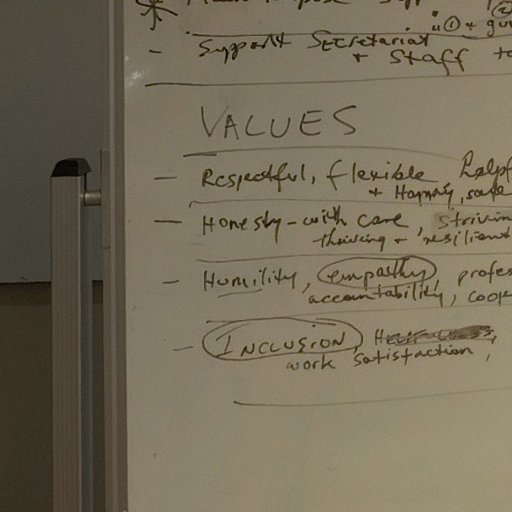 "① + gu
- Support Secretariat
+ Staff to
VALUES
- Respectful, flexible Helpf
+ Happy, safe
- Honesty - with care, strivin
thriving + resilient
- Humility, empathy, profes
accountability, coop
- INCLUSION,
work satisfaction,